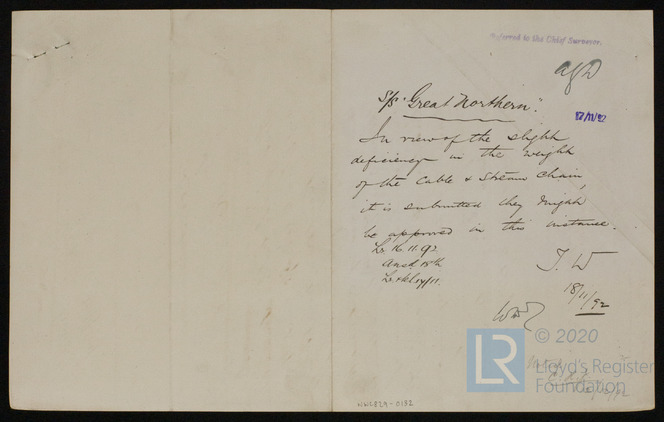 Referred to the Chief Surveyor.
S/S "Great Northern".
17/11/92
In view of the slight
deficiency in the weight
of the Cable & Stream Chain,
it is submitted they might
be approved in this instance.
Lr. 16.11.92
Ansd 18th
J.W
18/11/92
© 2020
LR
Lloyd's Register
Foundation